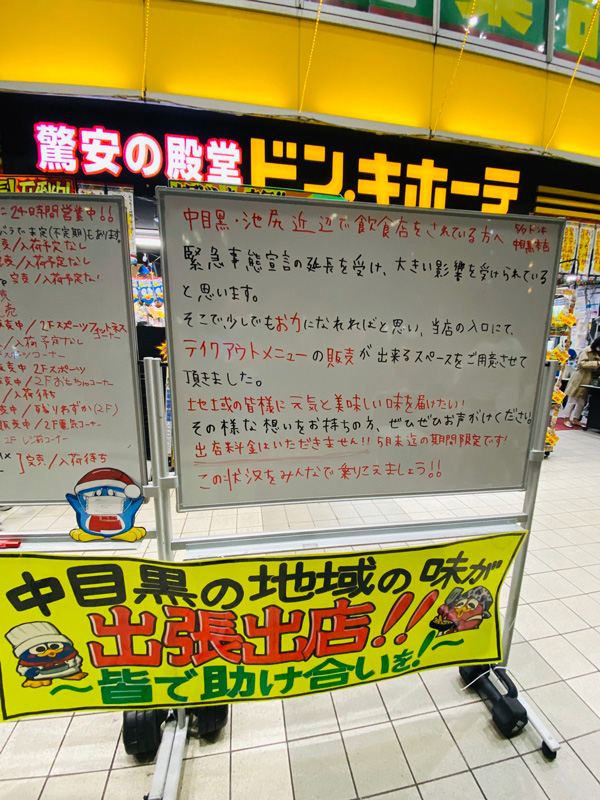 驚安の殿堂 ドン.キホーテ
24時間営業中!!
入荷予定なし
/入荷予定なし
完売/入荷予定なし
売
/2Fスポーツ
/入荷予定なし
コーナー
2Fスポーツ
/2Fおもちゃコーナー
/入荷待ち
/残りわずか(2F)
/2F電気コーナー
完売/入荷待ち
中目黒・池尻近辺で飲食店をされている方へ
ドンキ
中目黒本店
緊急事態宣言の延長を受け、大きい影響を受けられている
と思います。
そこで少しでもお力になれればと思い、当店の入口にて、
テイクアウトメニューの販売が出来るスペースをご用意させて
頂きました。
地域の皆様に元気と美味しい味を届けたい!
その様な想いをお持ちの方、ぜひぜひお声がけください。
出店料金はいただきません!! 5月末迄の期間限定です!
この状況をみんなで乗りこえましょう!!
中目黒の地域の味が
出張出店!!
~皆で助け合いを!~